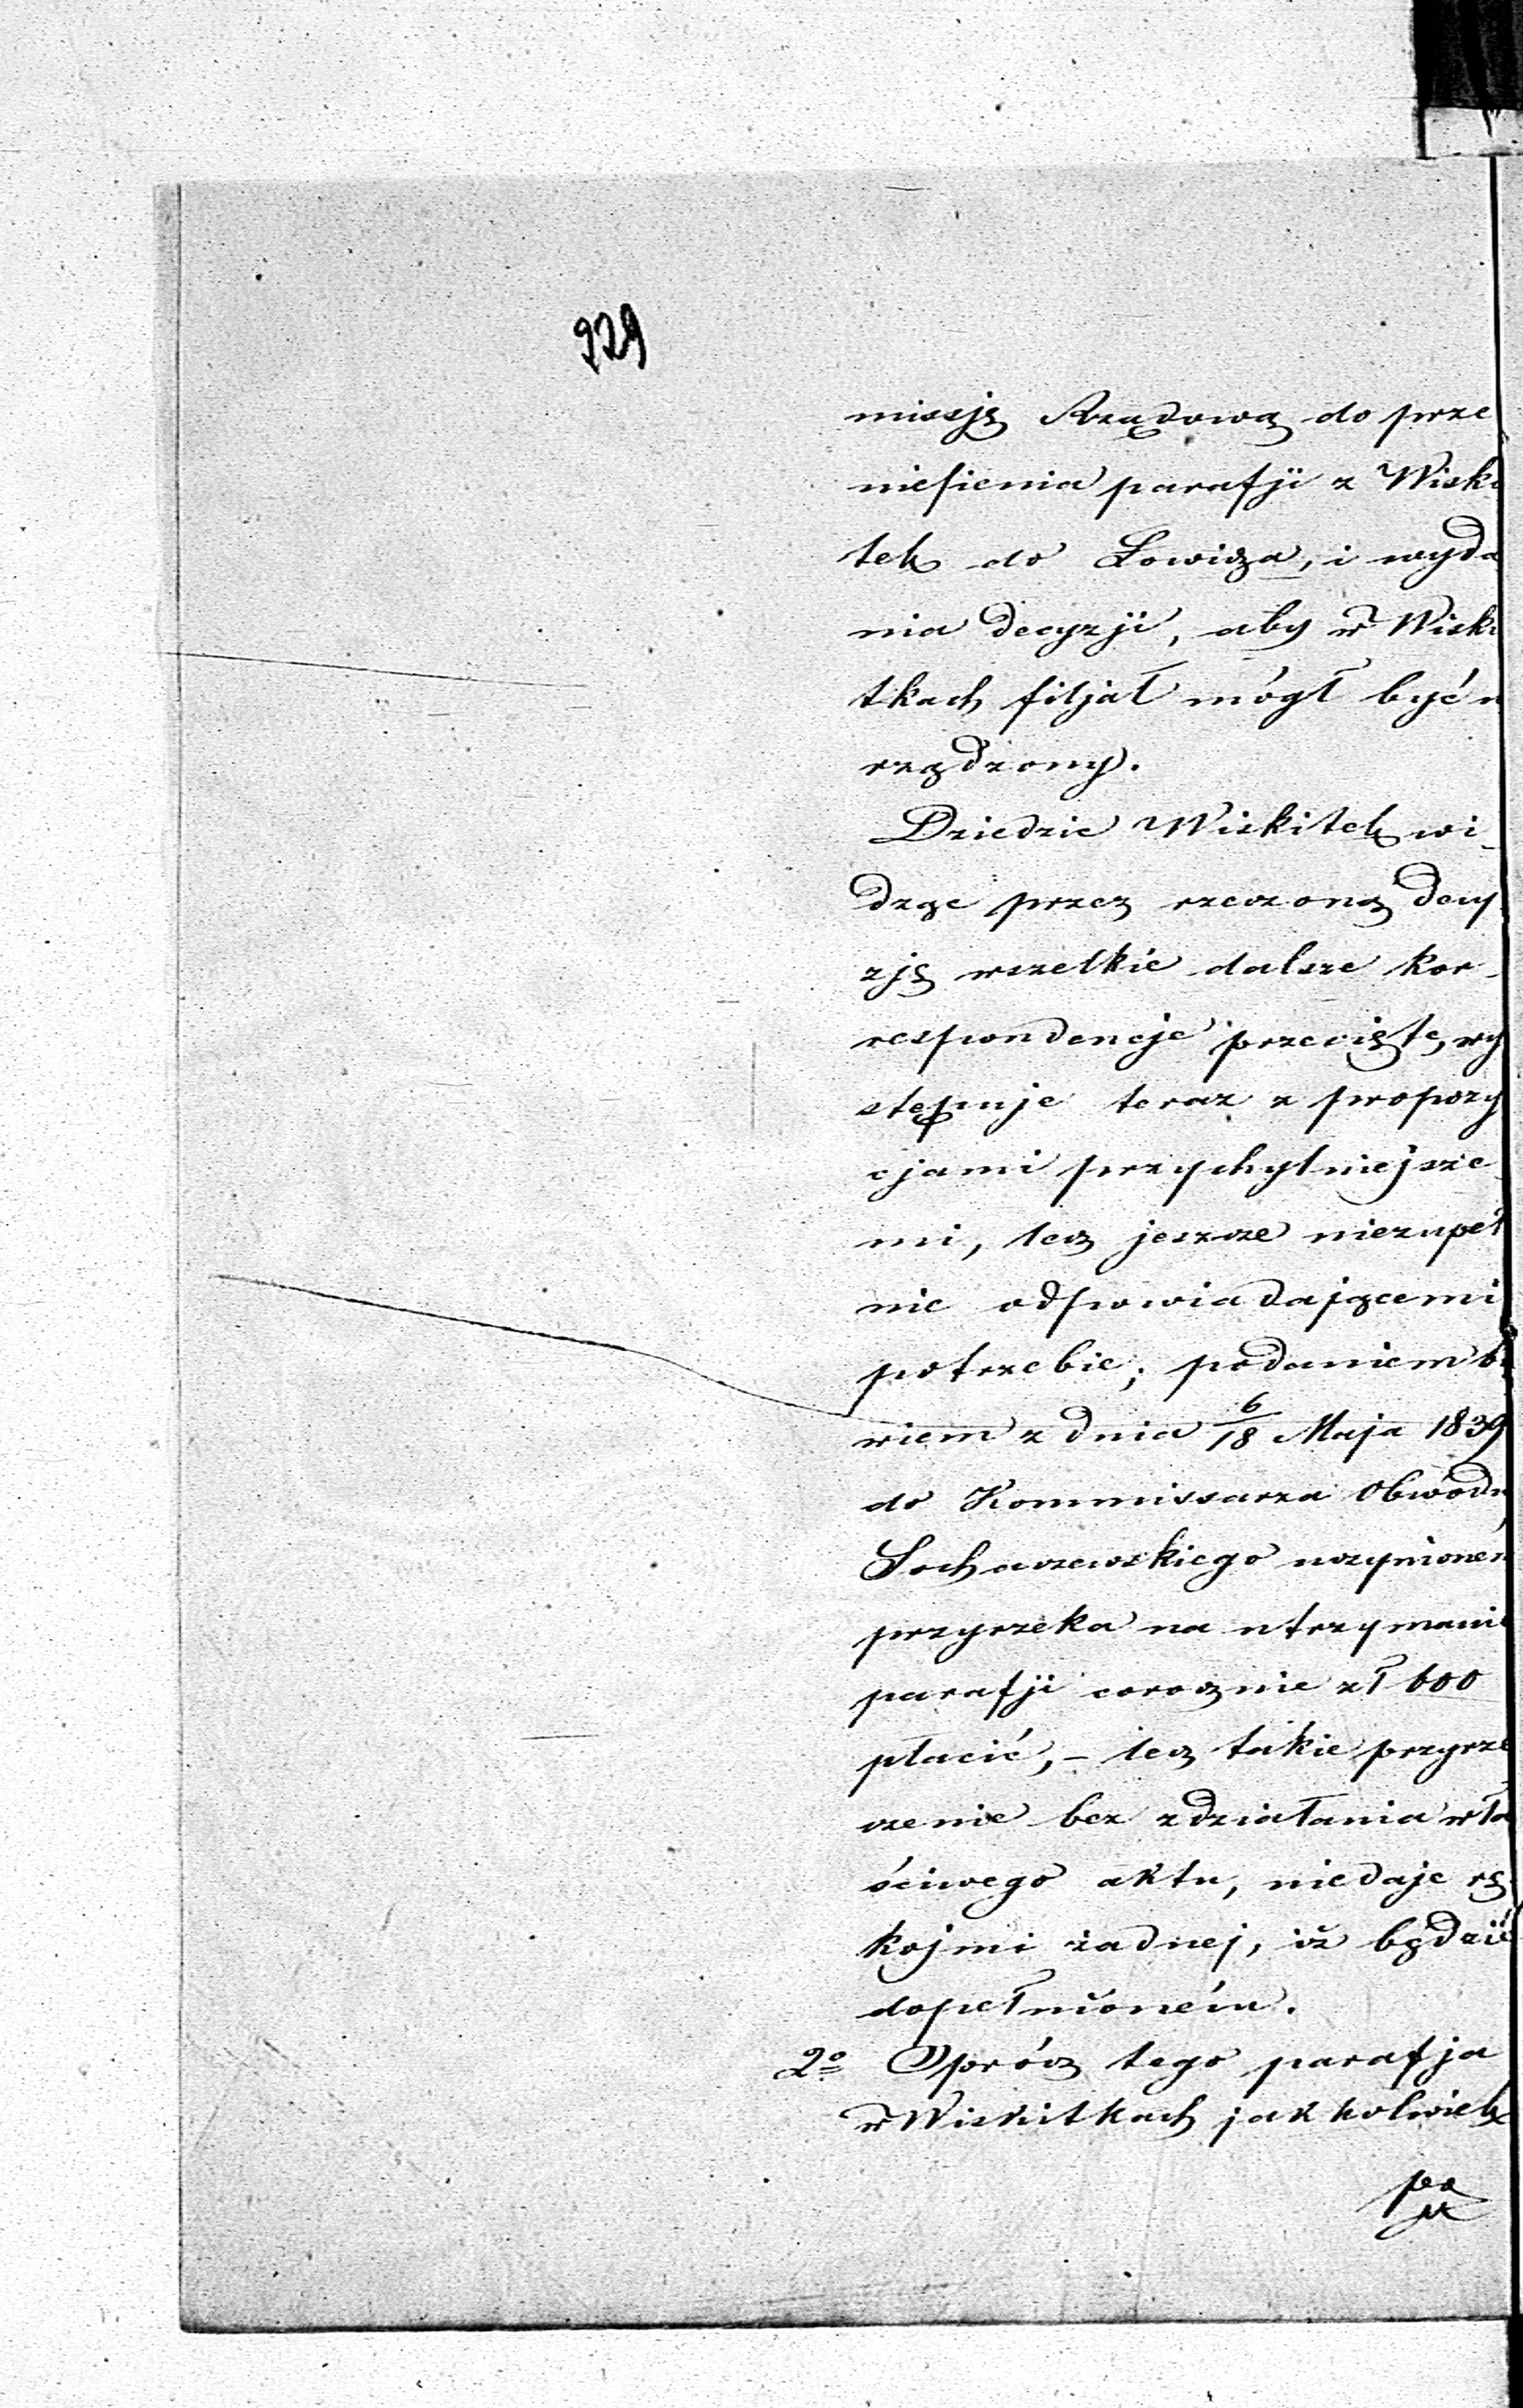 929
missję Rządową do prze
niesienia parafji z Wiski
tek do Łowicza, i wyda
nia decyzji, aby w Wiski
tkach filjał mógł być u
rządzony.
Dziedzic Wiskitek wi-
dząc przez rzeczoną decy
zję wszelkie dalsze kor-
respondencje przecięte, wy
stępuje teraz z propozy
cjami przychylniejsze
mi, lecz jeszcze niezupeł
nie odpowiadającemi
potrzebie; podaniem bo
wiem z dnia 6/18 Maja 1839
do Kommissarza Obwodu
Sochaczewskiego uczynionem
przyrzeka na utrzymanie
parafji corocznie zł 600
płacić, – lecz takie przyrze
czenie bez zdziałania wła
ściwego aktu, niedaje rę-
kojmi żadnej, iż będzie
dopełnioném.
2o Oprócz tego parafja
w Wiskitkach jakkolwiek
po